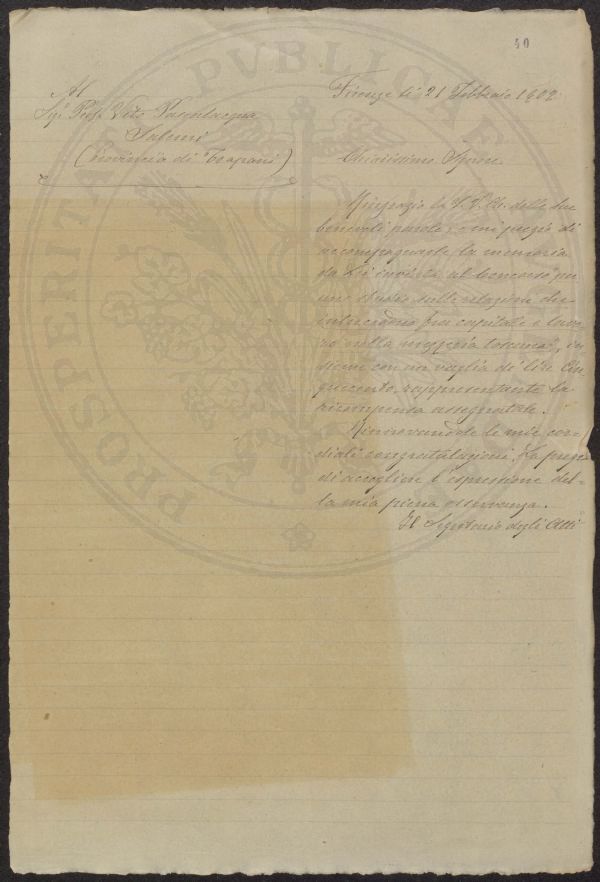 40
Firenze li 21 Febbraio 1902
Al
Sigr. Prof. Vito
Salemi
(Provincia di Trapani)
Chiarissimo Signore
Ringrazio la S. V. Ill. delle sue
benevoli parole, e mi pregio di
accompagnarle la memoria
da Lei inviata al concorso per
uno studio sulle relazioni che
intercedono fra capitale e lavo-
ro nella mezzeria toscana", in-
sieme con un vaglia di lire Cin-
quecento, rappresentante la
ricompensa assegnatale.
Rinnovandole le mie cor-
diali congratulazioni, La prego
di accogliere l'espressione del-
la mia piena osservanza.
Il Segretario degli Atti
PROSPERITATI PVBLICAE